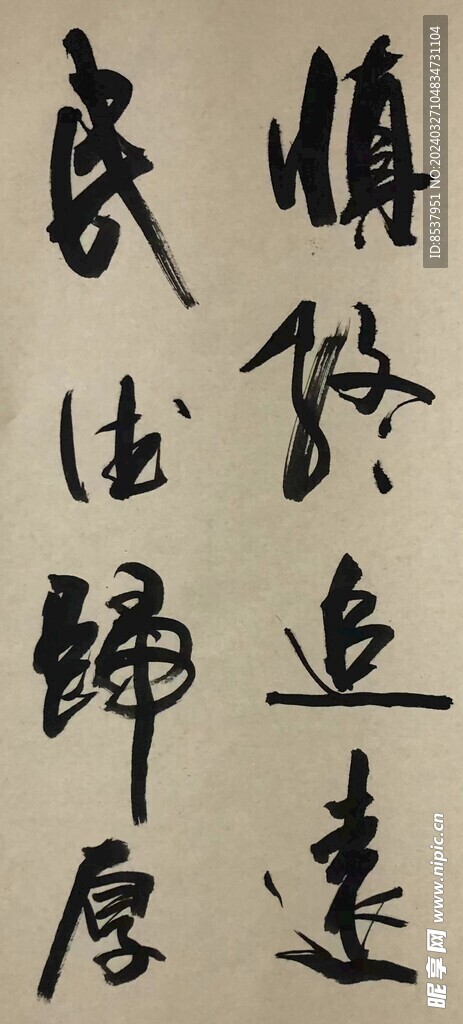 慎終追遠
民德歸厚
ID:8537951 NO:20240327104834731104
昵享网 www.nipic.cn